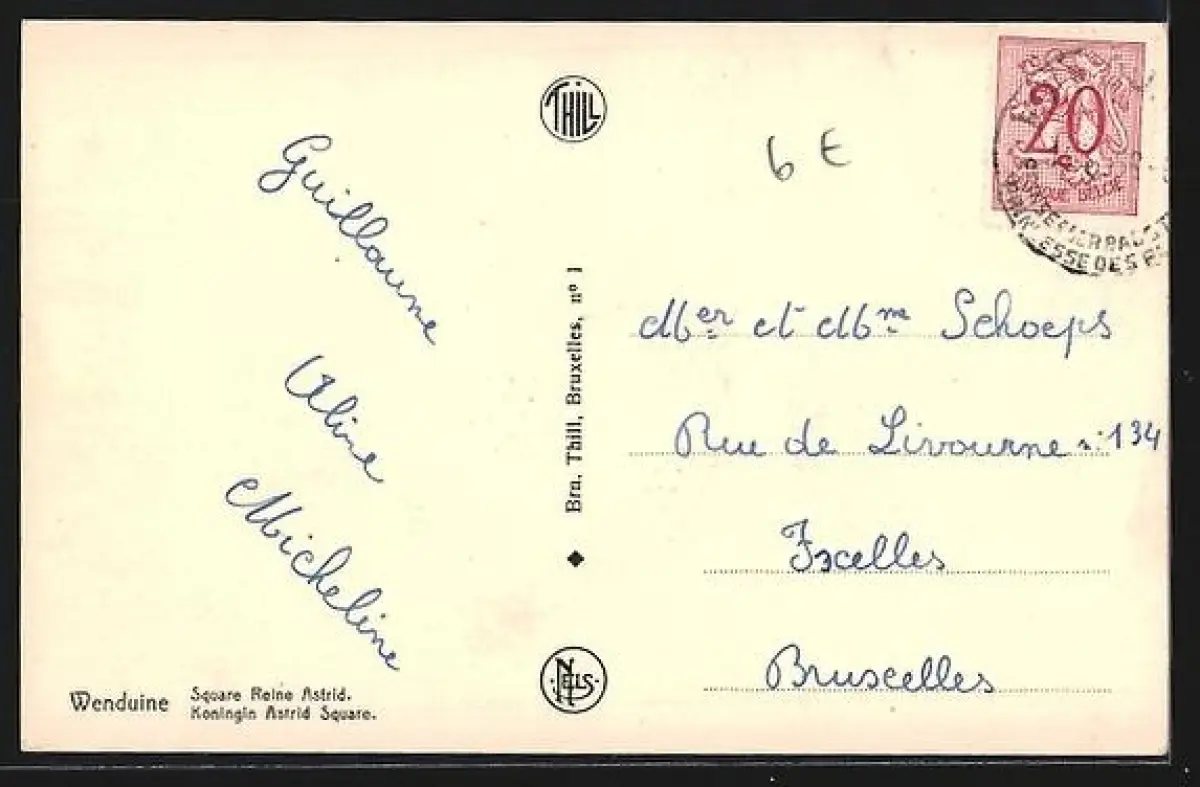 Guillaume
Aline
Micheline
Wenduine
Square Reine Astrid.
Koningin Astrid Square.
THILL
Bra. Thill, Bruxelles, nº 1
NELS
6 E
20
BELGIQUE BELGIE
ESSE DES
Mer et Mme Schoeps
Rue de Livourne n: 134
Ixcelles
Bruxcelles